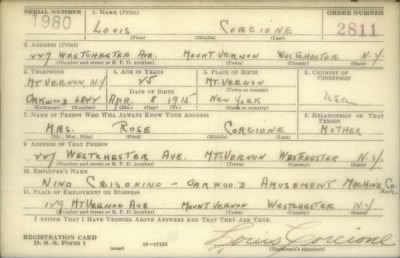 SERIAL NUMBER 1. NAME (Print) ORDER NUMBER
1980 LOUIS CORCIONE 2811
(First) (Middle) (Last)
2. ADDRESS (Print)
WESTCHESTER AVE. MOUNT VERNON WESTCHESTER N.Y.
(Number and street or R. F. D. number) (Town) (County) (State)
3. TELEPHONE 4. AGE IN YEARS 5. PLACE OF BIRTH 6. COUNTRY OF CITIZENSHIP
MT VERNON, N.Y. 25 MT. VERNON
DATE OF BIRTH
OAKWOOD APR. 8 1915 NEW YORK USA
(Exchange) (Number) (Mo.) (Day) (Yr.) (State or country)
7. NAME OF PERSON WHO WILL ALWAYS KNOW YOUR ADDRESS 8. RELATIONSHIP OF THAT PERSON
MRS. ROSE CORCIONE MOTHER
(Mr., Mrs., Miss) (First) (Middle) (Last)
9. ADDRESS OF THAT PERSON
WESTCHESTER AVE. MT. VERNON WESTCHESTER N.Y.
(Number and street or R. F. D. number) (Town) (County) (State)
10. EMPLOYER'S NAME
NINO - OAKWOOD AMUSEMENT MACHINE
11. PLACE OF EMPLOYMENT OR BUSINESS
MT VERNON AVE MOUNT VERNON WESTCHESTER N.Y.
(Number and street or R. F. D. number) (Town) (County) (State)
I AFFIRM THAT I HAVE VERIFIED ABOVE ANSWERS AND THAT THEY ARE TRUE.
REGISTRATION CARD
D. S. S. Form 1 (over) Louis Corcione
(Registrant's signature)